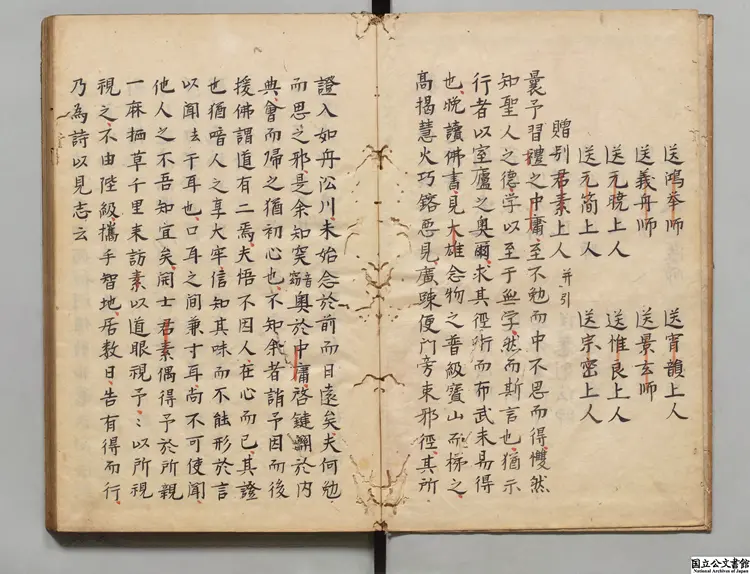 送鴻舉師　送宵韻上人
送義舟師　送景玄師
送元曉上人　送惟良上人
送元簡上人　送宗密上人
贈别君素上人 并引
曩予習禮之中庸至不勉而中不思而得戄然
知聖人之德学以至于無学然而斯言也猶示
行者以室廬之奧爾求其徑術而布武未易得
也晚讀佛書見大雄念物之普級寶山而梯之
高揭慧火巧鎔惡見廣疎便門旁束邪徑其所
證入如舟沿川未始念於前而日遠矣夫何勉
而思之邪是余知突音窈奧於中庸啓鍵翩於内
典會而歸之猶初心也不知余者誚予困而後
援佛謂道有二焉夫悟不因人在心而已其證
也猶喑人之享大牢信知其味而不能形於言
以聞去于耳也口耳之間兼寸耳尚不可使聞
他人之不吾知宜矣開士君素偶得予於所親
一麻栖草千里来訪素以道眼視予ミ以所視
視之不由陛級攜手智地居數日告有得而行
乃為詩以見志云
国立公文書館
National Archives of Japan